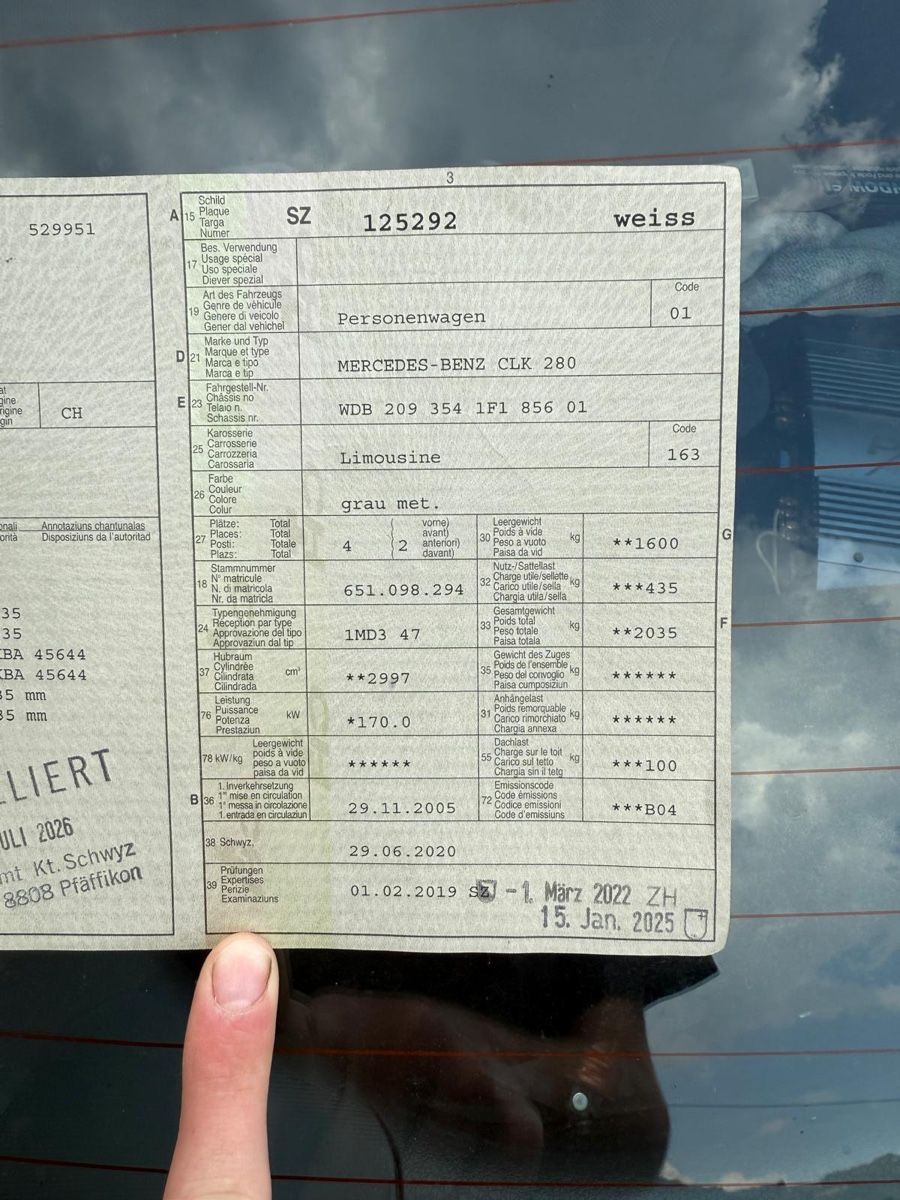 3
529951
at
gine
rigine
gin
CH
onali
orità
Annotaziuns chantunalas
Disposiziuns da l'autoritad
35
35
KBA 45644
KBA 45644
35 mm
35 mm
LLIERT
ULI 2026
mt Kt. Schwyz
8808 Pfäffikon
A 15 Schild
Plaque
Targa
Numer
SZ 125292 weiss
17 Bes. Verwendung
Usage spécial
Uso speciale
Diever spezial
19 Art des Fahrzeugs
Genre de véhicule
Genere di veicolo
Gener dal vehichel
Personenwagen
Code
01
D 21 Marke und Typ
Marque et type
Marca e tipo
Marca e tip
MERCEDES-BENZ CLK 280
E 23 Fahrgestell-Nr.
Châssis no
Telaio n.
Schassis nr.
WDB 209 354 1F1 856 01
25 Karosserie
Carrosserie
Carrozzeria
Carossaria
Limousine
Code
163
26 Farbe
Couleur
Colore
Colur
grau met.
27 Plätze: Total
Places: Total
Posti: Totale
Plazs: Total
4
2
vorne)
avant)
anteriori)
davant)
30 Leergewicht
Poids à vide
Peso a vuoto
Paisa da vid
kg
**1600
G
18 Stammnummer
N° matricule
N. di matricola
Nr. da matricla
651.098.294
32 Nutz-/Sattellast
Charge utile/sellette
Carico utile/sella
Chargia utila/sella
kg
***435
24 Typengenehmigung
Réception par type
Approvazione del tipo
Approvaziun dal tip
1MD3 47
33 Gesamtgewicht
Poids total
Peso totale
Paisa totala
kg
**2035
F
37 Hubraum
Cylindrée
Cilindrata
Cilindrada
cm³
**2997
35 Gewicht des Zuges
Poids de l'ensemble
Peso del convoglio
Paisa cumposiziun
kg
******
76 Leistung
Puissance
Potenza
Prestaziun
kW
*170.0
31 Anhängelast
Poids remorquable
Carico rimorchiato
Chargia annexa
kg
******
78 kW/kg
Leergewicht
poids à vide
peso a vuoto
paisa da vid
******
55 Dachlast
Charge sur le toit
Carico sul tetto
Chargia sin il tetg
kg
***100
B 36 1. Inverkehrsetzung
1re mise en circulation
1a messa in circolazione
1. entrada en circulaziun
29.11.2005
72 Emissionscode
Code émissions
Codice emissioni
Code d'emissiuns
***B04
38 Schwyz,
29.06.2020
39 Prüfungen
Expertises
Perizie
Examinaziuns
01.02.2019 SZ
-1. März 2022 ZH
15. Jan. 2025